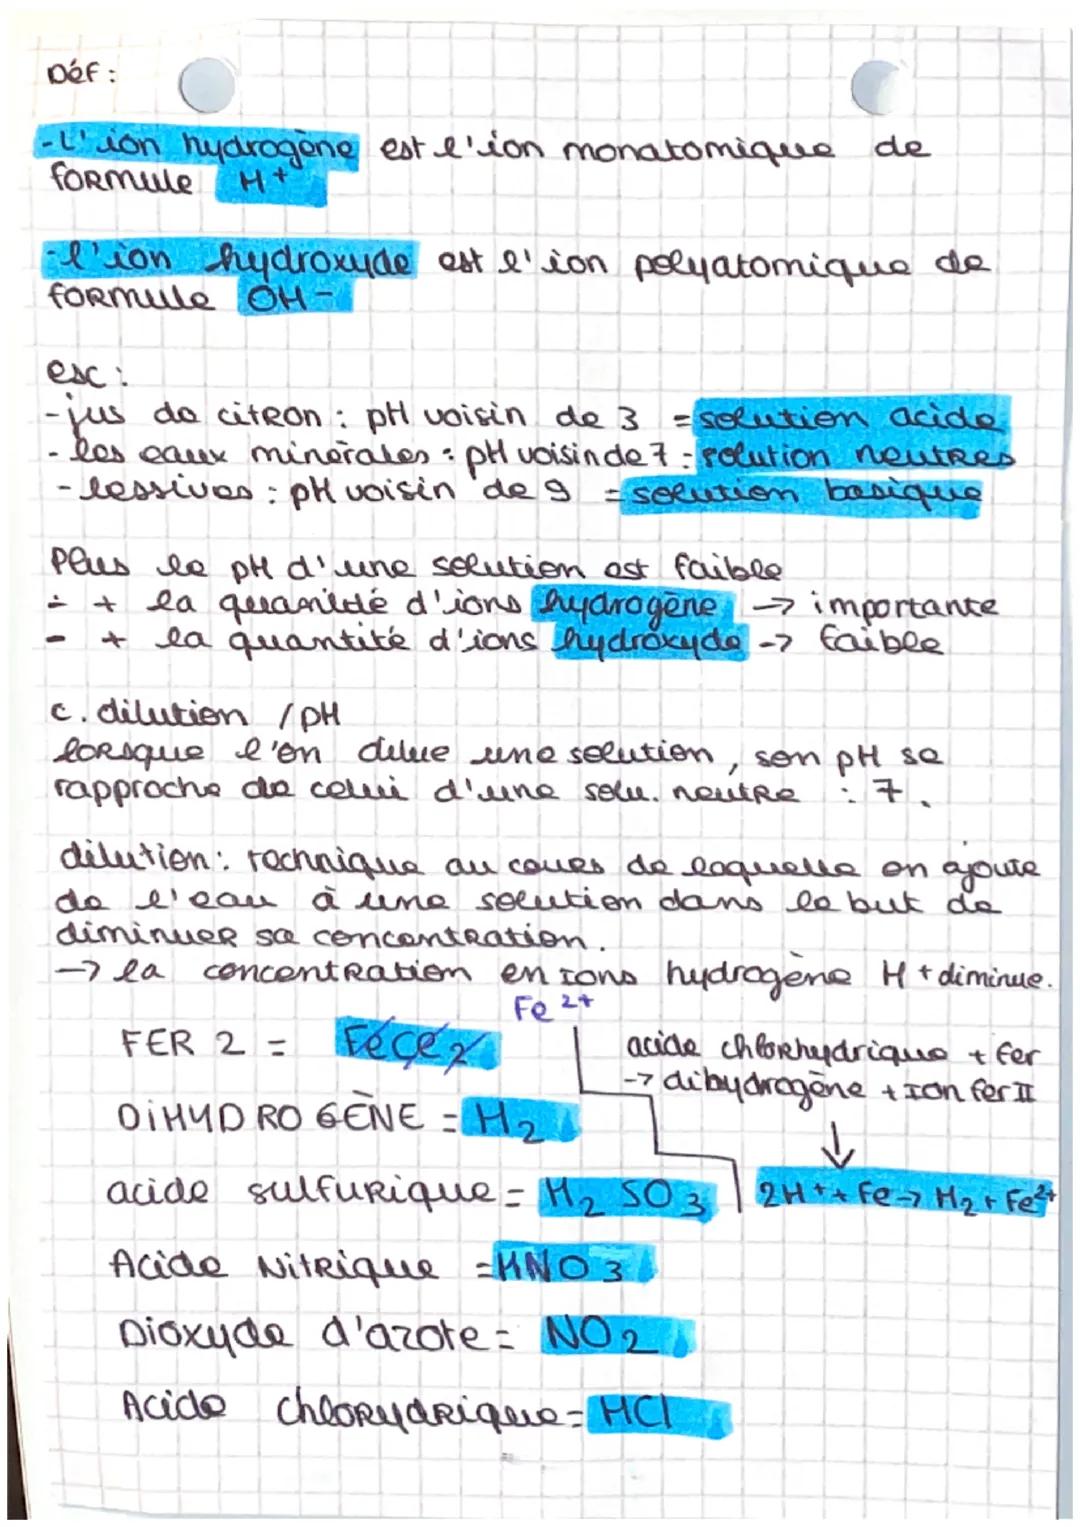 Déf :
- L'ion hydrogène est l'ion monatomique de
formule H+
- l'ion hydroxyde est l'ion polyatomique de
formule OH-
ex :
- jus de citron : pH voisin de 3 = solution acide
- les eaux minérales : pH voisin de 7 = solution neutres
- lessives : pH voisin de 9 = solution basique
Plus le pH d'une solution est faible
- + la quantité d'ions hydrogène -> importante
- + la quantité d'ions hydroxyde -> faible
c. dilution / pH
lorsque l'on dilue une solution, son pH se
rapproche de celui d'une solu. neutre : 7.
dilution : technique au cours de laquelle on ajoute
de l'eau à une solution dans le but de
diminuer sa concentration.
-> la concentration en ions hydrogène H+ diminue.
Fe 2+
FER 2 = FeCl2
DIHYDROGÈNE = H2
acide sulfurique = H2 SO3
Acide Nitrique = HNO3
Dioxyde d'azote = NO2
Acide chlorydrique = HCl
acide chlorhydrique + fer
-> dihydrogène + Ion fer II
↓
2H+ + Fe -> H2 + Fe2+